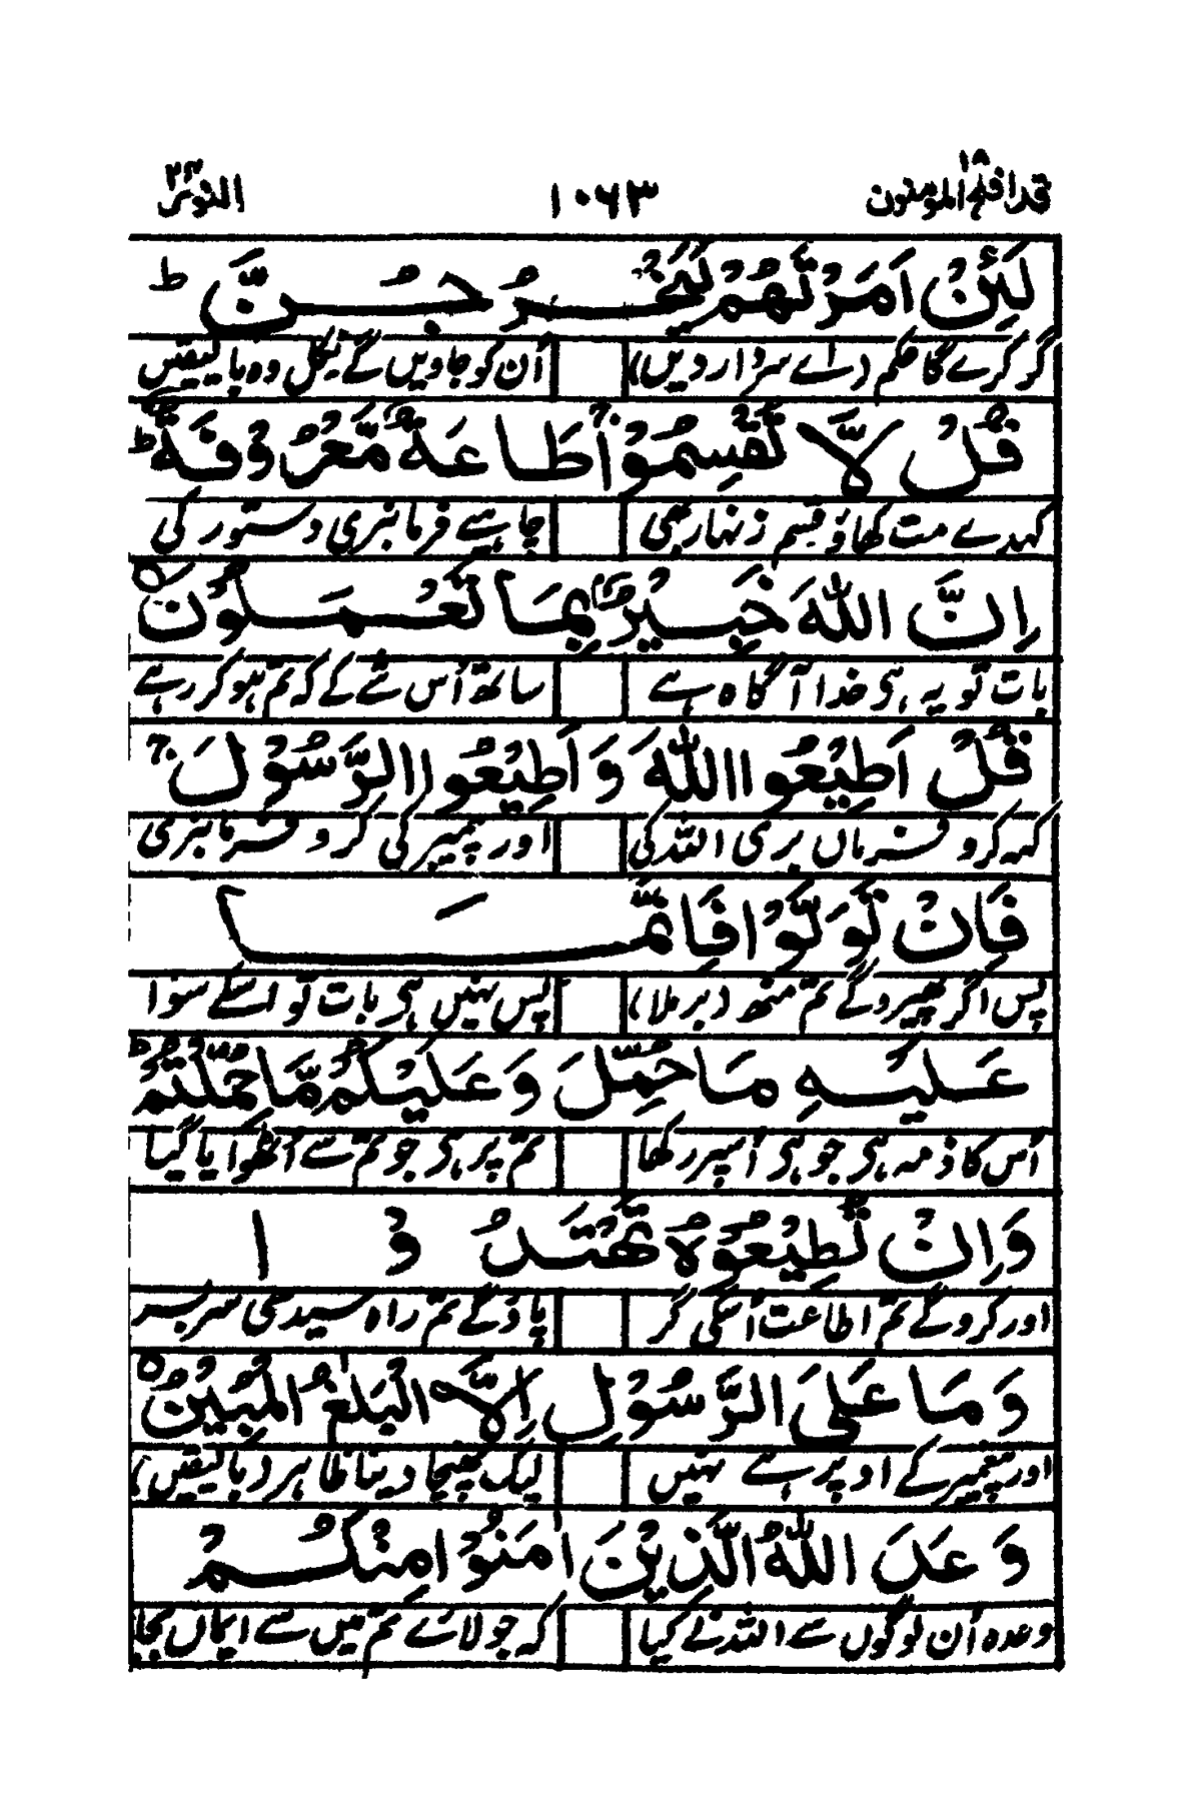 قد افلح المؤمنون ١٨ ١٠٦٣ النور ٢٤
لَئِنْ اَمَرْتَهُمْ لَيَخْرُجُنَّ ؕ
گر کرے گا حکم (اے سردار دیں) اُن کو جاویں گے نکل وہ بالیقیں
قُلْ لَّا تُقْسِمُوْا ۚ طَاعَةٌ مَّعْرُوْفَةٌ ؕ
کہدے مت کھاؤ قسم زنہار بھی چاہیے فرمانبری دستور کی
اِنَّ اللّٰهَ خَبِيْرٌۢ بِمَا تَعْمَلُوْنَ ○
بات تو یہ ہی خدا آگاہ ہے ساتھ اُس شے کے کہ تم ہو کر رہے
قُلْ اَطِيْعُوا اللّٰهَ وَاَطِيْعُوا الرَّسُوْلَ ۚ
کہہ کرو فرماں بری اللہ کی اور پیمبر کی کرو فرمانبری
فَاِنْ تَوَلَّوْا فَاِنَّمَا
پس اگر پھیروگے تم منھ (برملا) پس نہیں ہی بات تو اسکے سوا
عَلَيْهِ مَا حُمِّلَ وَعَلَيْكُمْ مَّا حُمِّلْتُمْ ؕ
اُس کا ذمہ ہی جو ہی اُسپر رکھا تم پر ہی جو تم سے اٹھوایا گیا
وَاِنْ تُطِيْعُوْهُ تَهْتَدُوْا
اور کروگے تم اطاعت اُسکی گر پاؤگے تم راہ سیدھی سربسر
وَمَا عَلَى الرَّسُوْلِ اِلَّا الْبَلٰغُ الْمُبِيْنُ ○
اور پیمبر کے اوپر ہے نہیں لیک پہنچا دینا ظاہر (بالیقیں)
وَعَدَ اللّٰهُ الَّذِيْنَ اٰمَنُوْا مِنْكُمْ
وعدہ اُن لوگوں سے اللہ نے کیا کہ جو لائے تم میں سے ایماں بجا